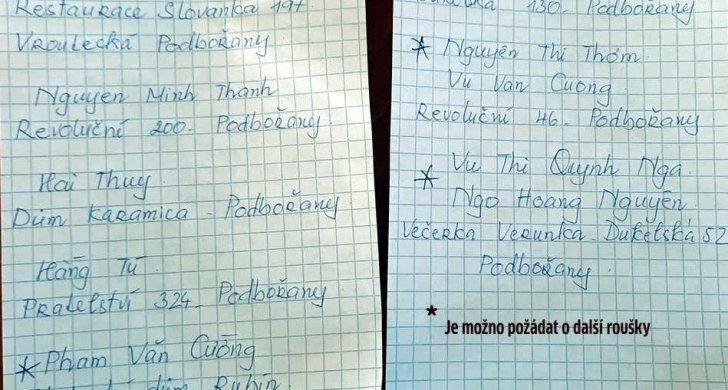 Restaurace Slovanka 197
Vroutecká Podbořany
Nguyen Minh Thanh
Revoluční 200 - Podbořany
Hai Thuy
Dům Karamica - Podbořany
Hằng Tú
Pratelství 324 - Podbořany
* Phạm Văn Cường
dům Rubín
130 - Podbořany
* Nguyên Thi Thơm
Vu Van Cuong
Revoluční 46 - Podbořany
* Vu Thi Quynh Nga
Ngo Hoang Nguyên
Večerka Verunka - Dukelská 52
Podbořany
* Je možno požádat o další roušky